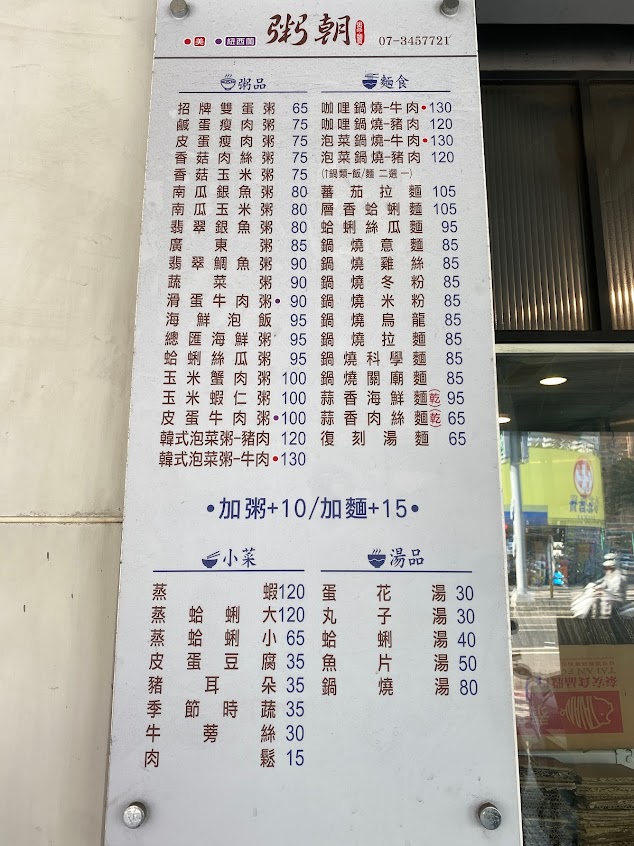 ●美 ●紐西蘭 粥朝 07-3457721
粥品
招牌雙蛋粥 65
鹹蛋瘦肉粥 75
皮蛋瘦肉粥 75
香菇肉絲粥 75
香菇玉米粥 75
南瓜銀魚粥 80
南瓜玉米粥 80
翡翠銀魚粥 80
廣東粥 85
翡翠鯛魚粥 90
蔬菜粥 90
滑蛋牛肉粥● 90
海鮮泡飯 95
總匯海鮮粥 95
蛤蜊絲瓜粥 95
玉米蟹肉粥 100
玉米蝦仁粥 100
皮蛋牛肉粥●100
韓式泡菜粥-豬肉 120
韓式泡菜粥-牛肉●130
麵食
咖哩鍋燒-牛肉●130
咖哩鍋燒-豬肉 120
泡菜鍋燒-牛肉●130
泡菜鍋燒-豬肉 120
(↑鍋類-飯/麵 二選一)
蕃茄拉麵 105
層香蛤蜊麵 105
蛤蜊絲瓜麵 95
鍋燒意麵 85
鍋燒雞絲 85
鍋燒冬粉 85
鍋燒米粉 85
鍋燒烏龍 85
鍋燒拉麵 85
鍋燒科學麵 85
鍋燒關廟麵 85
蒜香海鮮麵(乾) 95
蒜香肉絲麵(乾) 65
復刻湯麵 65
●加粥+10/加麵+15●
小菜
蒸蝦120
蒸蛤蜊大120
蒸蛤蜊小 65
皮蛋豆腐 35
豬耳朵 35
季節時蔬 35
牛蒡絲 30
肉鬆 15
湯品
蛋花湯 30
丸子湯 30
蛤蜊湯 40
魚片湯 50
鍋燒湯 80